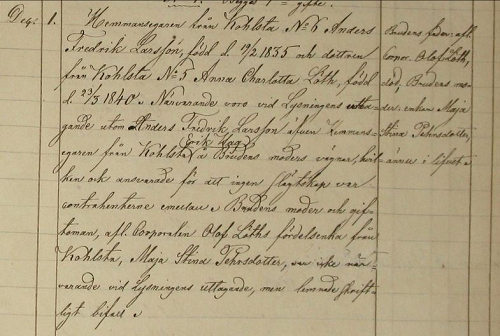 Decr. 1. Hemmansegaren från Kohlsta No 6 Anders
Fredrik Larsson, född d. 19/2 1835 och dottren
från Kohlsta No 5 Anna Charlotta Löth, född
d. 23/3 1840. Närvarande voro vid Lysningens utta-
gande utom Anders Fredrik Larsson äfven Hemmans-
egaren från Kohlsta Erik Jag å Brudens moders vägnar, hvil-
ken ock ansvarade för att ingen slägtskap var
contrahenterne emellan. Brudens moder och gif-
toman, afl. Corporalen Olof Löths födelsenka från
Kohlsta, Maja Stina Pehrsdotter, var icke när-
varande vid Lysningens uttagande, men lemnade skrift-
ligt bifall.
Brudens fader: afl.
Corpor. Olof Löth,
död, Brudens mo-
der enkan Maja
Stina Pehrsdotter,
ännu i lifvet.